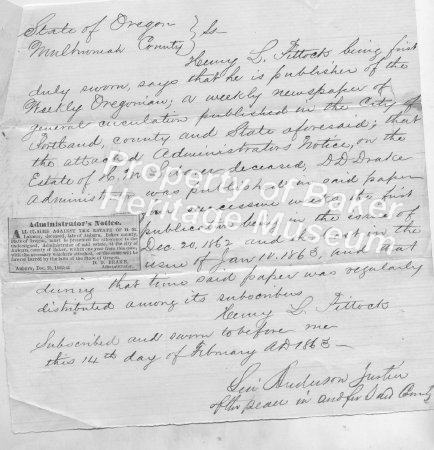 State of Oregon } Ss
Multnomah County }
Henry L. Pittock being first
duly sworn, says that he is publisher of the
Weekly Oregonian; a weekly newspaper of
general circulation published in the City of
Portland, county and State aforesaid; that
the attached Administrators Notice, on the
Estate of deceased, D.D. Drake
Administrator was published in said paper
for successive weeks, the first
publication being in the issue of
Dec. 20, 1862 and the last in the
issue of Jan 18. 1863, and that
during that time said paper was regularly
distributed among its subscribers
Henry L. Pittock
Subscribed and sworn to before me
this 14th day of February AD 1863 –
Anderson Justice
of the peace in and for said County
Administrator's Notice.
ALL CLAIMS AGAINST THE ESTATE OF
deceased, late of Auburn, Baker county,
State of Oregon, must be presented for allowance to the
undersigned, Administrator of said estate, at the city of
Auburn, county of Baker, within one year from date,
with the necessary vouchers attached, or the same will be
forever barred by the laws of the State of Oregon.
D. D. DRAKE,
Auburn, Dec. Administrator.
Property of Baker
Heritage Museum